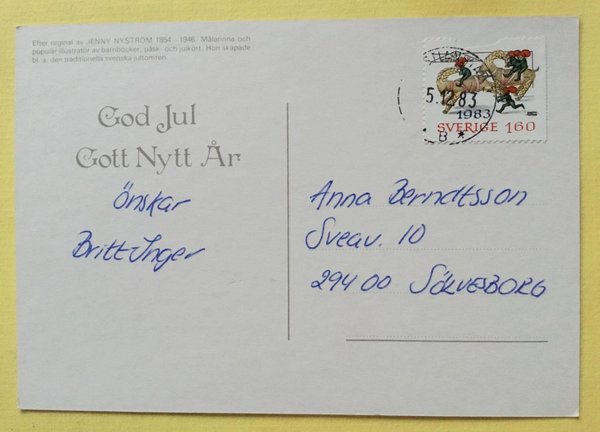 Efter orginal av JENNY NYSTRÖM 1854 - 1946. Målarinna och
populär illustratör av barnböcker, påsk- och julkort. Hon skapade
bl. a. den traditionella svenska jultomten.
God Jul
Gott Nytt År
Önskar
Britt-Inger
5.12.83
B *
1983
SVERIGE 160
Anna Berndtsson
Sveav. 10
294 00 SÖLVESBORG